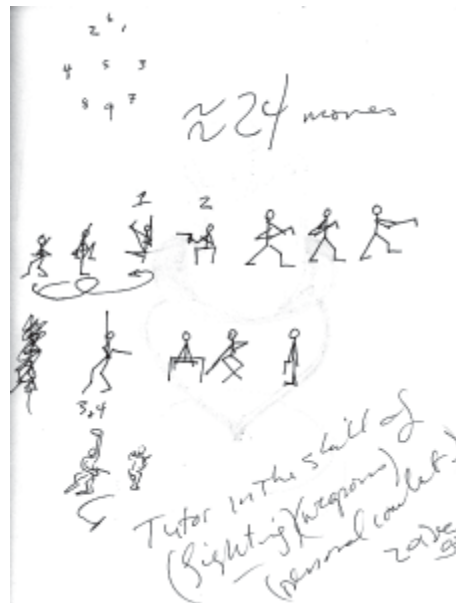 2 6 1
4 5 3
8 9 7
≈24 moves
1 2
3,4
Tutor in the skill of
(fighting)(weapons)
(personal combat)